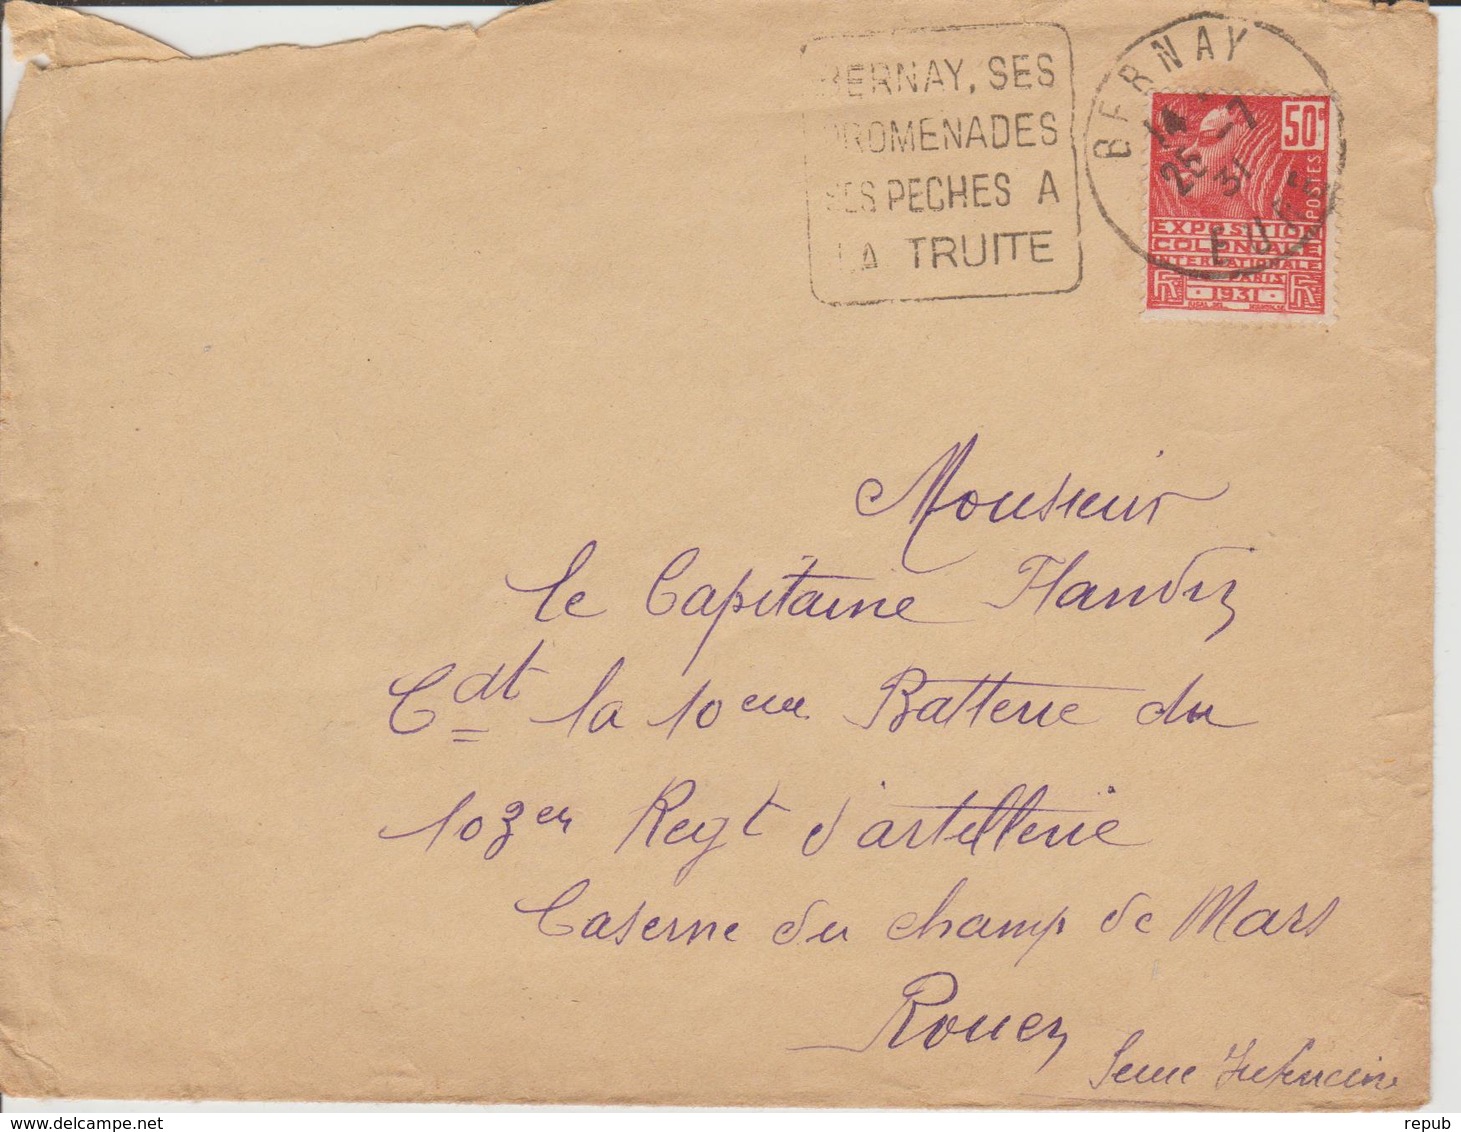 BERNAY, SES
PROMENADES
SES PECHES A
LA TRUITE
BERNAY
14
25 -7
31
EURE
50c
POSTES
EXPOSITION
COLONIALE
INTERNATIONALE
PARIS
RF · 1931 · RF
Monsieur
le Capitaine
Cdt la 10eme Batterie du
103er Regt d'artillerie
Caserne du champ de Mars
Rouen
Seine Inférieure
delcampe.net
repub